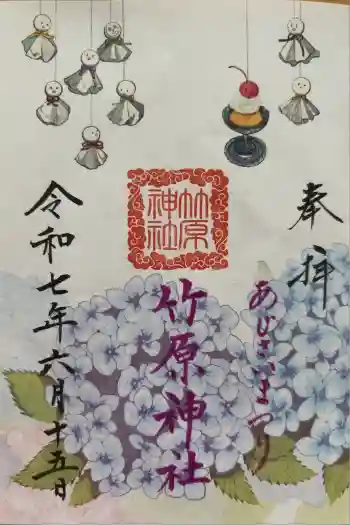 奉拝
あじさいまつり
竹原神社
竹原
神社
令和七年六月十五日